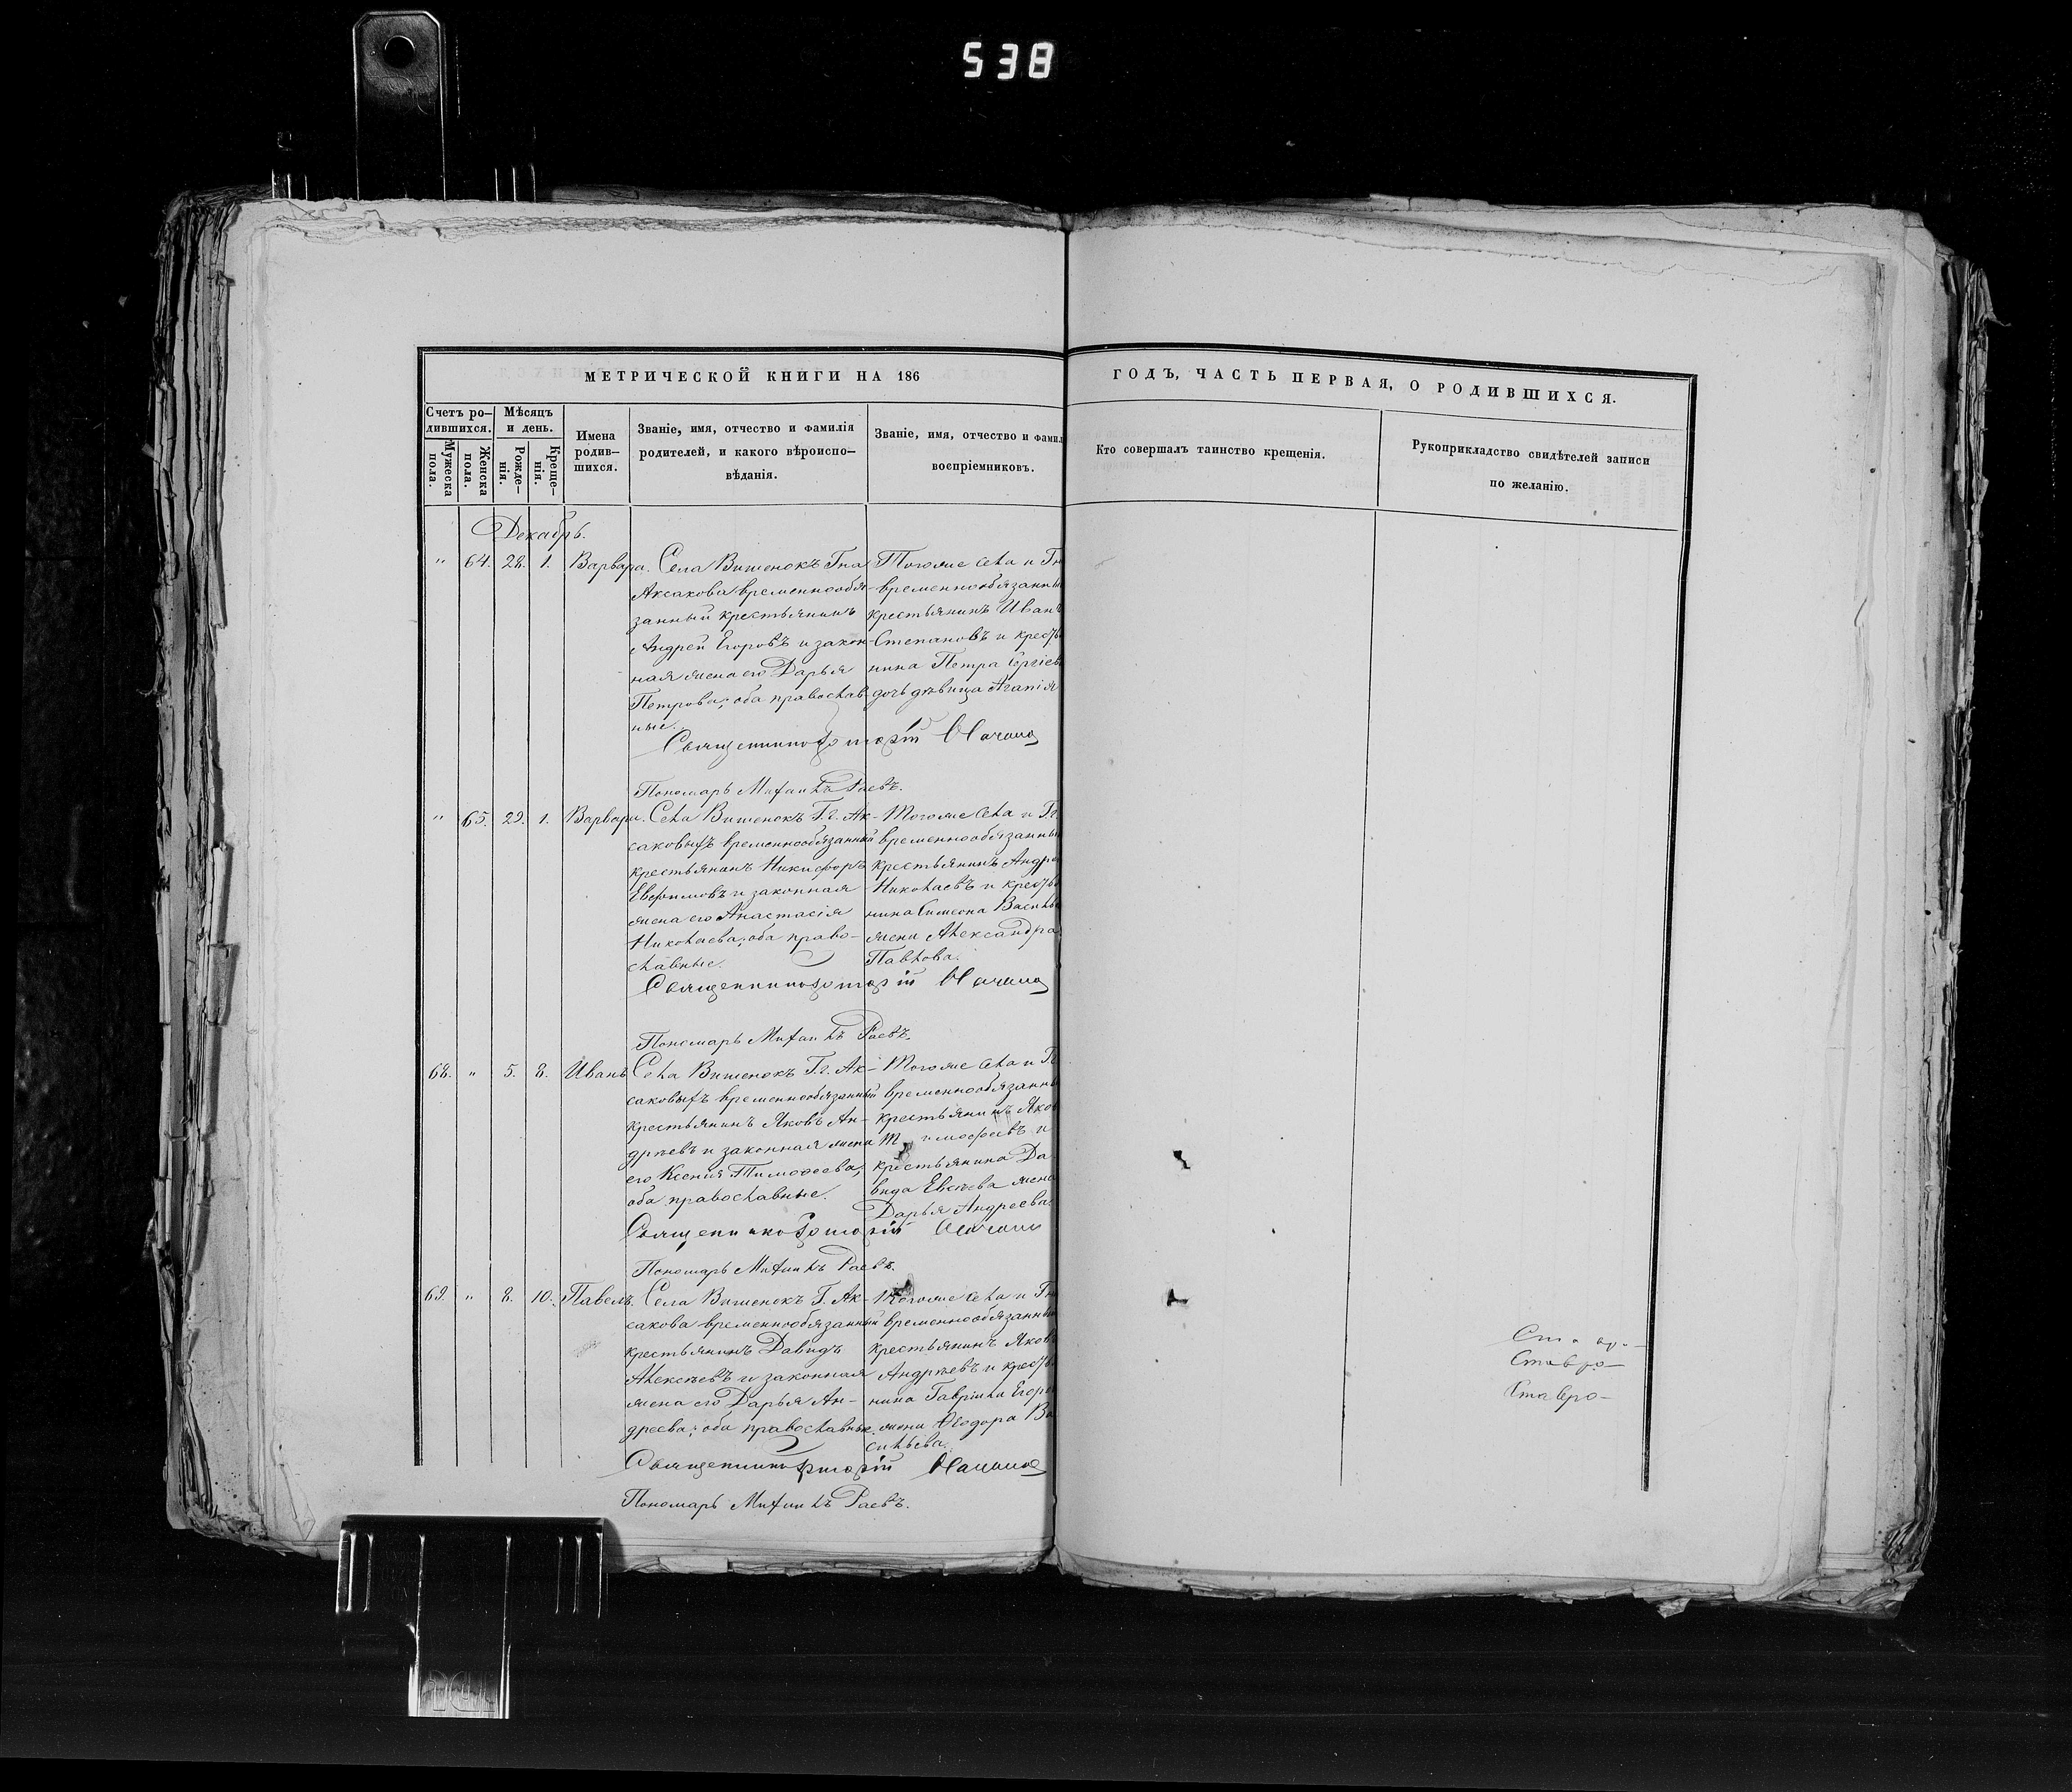 538
МЕТРИЧЕСКОЙ КНИГИ НА 186
ГОДЪ, ЧАСТЬ ПЕРВАЯ, О РОДИВШИХСЯ.
Счетъ ро-
дившихся.
Мужеска
пола.
Женска
пола.
Мѣсяцъ
и день.
Рожде-
нія.
Креще-
нія.
Имена
родив-
шихся.
Званіе, имя, отчество и фамилія
родителей, и какого вѣроиспо-
вѣданія.
Званіе, имя, отчество и фамил
воспріемниковъ.
Кто совершалъ таинство крещенія.
Рукоприкладство свидѣтелей записи
по желанію.
Декабрь.
" 64. 28. 1. Варвара.
Села Вишенокъ Гна
Аксакова временнообя-
занный крестьянинъ
Андрей Егоровъ и закон-
ная жена его Дарья
Петрова; оба православ-
ные.
Тогоже села и Гн
временнообязанны
крестьянинъ Иванъ
Степановъ и кресть
нина Петра Сергіев
дочь дѣвица Агапія
Священникъ
Пономарь Михаилъ Раевъ.
" 65. 29. 1. Варвара.
Села Вишенокъ Г.г. Ак-
саковыхъ временнообязанный
крестьянинъ Никифоръ
Евфимовъ и законная
жена его Анастасія
Николаева; оба право-
славные.
Тогоже села и Гг.
временнообязанны
крестьянинъ Андре
Николаевъ и кресть
нина Симеона Василь
жена Александра
Павлова.
Священникъ
Пономарь Михаилъ Раевъ.
68. " 5. 8. Иванъ
Села Вишенокъ Г.г. Ак-
саковыхъ временнообязанный
крестьянинъ Яковъ Ан-
дреевъ и законная жена
его Ксенія Тимофеева;
оба православные.
Тогоже села и Гг
временнообязанны
крестьянинъ Яков
Тимофеевъ и
крестьянина Да-
вида Евсѣева жена
Дарья Андреева.
Священникъ
Пономарь Михаилъ Раевъ.
69. " 8. 10. Павелъ.
Села Вишенокъ Г. Ак-
сакова временнообязанный
крестьянинъ Давидъ
Алексѣевъ и законная
жена его Дарья Ан-
дреева; оба православные.
Тогоже села и Гн
временнообязанный
крестьянинъ Яковъ
Андреевъ и кресть
нина Гавріила Егоро
жена Ѳеодора Ва
сильева.
Священникъ
Пономарь Михаилъ Раевъ.
Ставро-
Ставро-